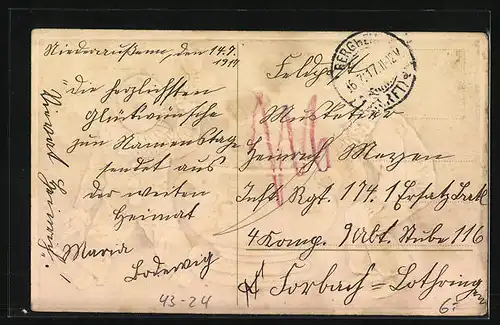 Niederaußem, den 14.7.
1917
"Die herzlichsten
Glückwünsche
zum Namenstage
sendet aus
der weiten
Heimat
Maria
Lodewig
Vivat Heinrich!
43-24
Feldp
BERGHEIM
16.7.17.11-12V
(ERFT)
Musketier
Heinrich Meyen
Inft. Rgt. 174. 1 Ersatz Batl
4 Komp. 9 Abt. Stube 116
Forbach=Lothringen
6.-